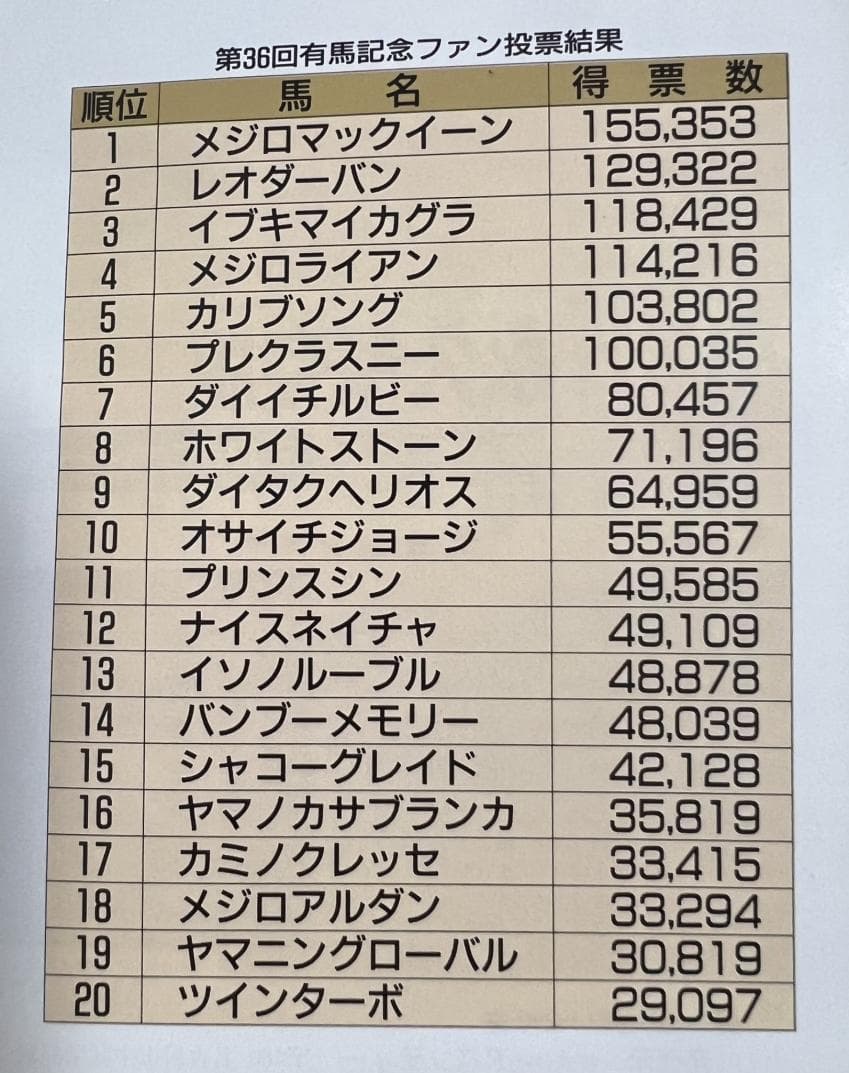 第36回有馬記念ファン投票結果
順位 馬名 得票数
1 メジロマックイーン 155,353
2 レオダーバン 129,322
3 イブキマイカグラ 118,429
4 メジロライアン 114,216
5 カリブソング 103,802
6 プレクラスニー 100,035
7 ダイイチルビー 80,457
8 ホワイトストーン 71,196
9 ダイタクヘリオス 64,959
10 オサイチジョージ 55,567
11 プリンスシン 49,585
12 ナイスネイチャ 49,109
13 イソノルーブル 48,878
14 バンブーメモリー 48,039
15 シャコーグレイド 42,128
16 ヤマノカサブランカ 35,819
17 カミノクレッセ 33,415
18 メジロアルダン 33,294
19 ヤマニングローバル 30,819
20 ツインターボ 29,097